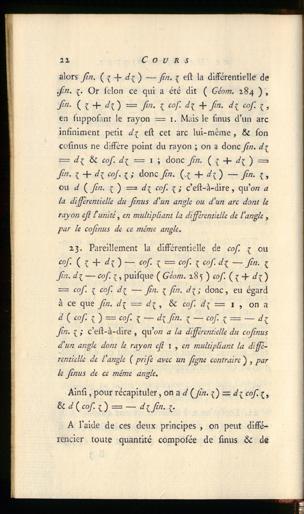 22 COURS
alors ſin. (z + dz) — ſin. z eſt la différentielle de
ſin. z. Or ſelon ce qui a été dit (Géom. 284),
ſin. (z + dz) = ſin. z coſ. dz + ſin. dz coſ. z,
en ſuppoſant le rayon = 1. Mais le ſinus d'un arc
infiniment petit dz eſt cet arc lui-même, & ſon
coſinus ne différe point du rayon; on a donc ſin. dz
= dz & coſ. dz = 1; donc ſin. (z + dz) =
ſin. z + dz coſ. z; donc ſin. (z + dz) — ſin. z,
ou d (ſin. z) = dz coſ. z; c'eſt-à-dire, qu'on a
la différentielle du ſinus d'un angle ou d'un arc dont le
rayon eſt l'unité, en multipliant la différentielle de l'angle,
par le coſinus de ce même angle.
23. Pareillement la différentielle de coſ. z ou
coſ. (z + dz) — coſ. z = coſ. z coſ. dz — ſin. z
ſin. dz — coſ. z, puiſque (Géom. 285) coſ. (z + dz)
= coſ. z coſ. dz — ſin. z ſin. dz; donc, eu égard
à ce que ſin. dz = dz, & coſ. dz = 1, on a
d (coſ. z) = coſ. z — dz ſin. z — coſ. z = — dz
ſin. z; c'eſt-à-dire, qu'on a la différentielle du coſinus
d'un angle dont le rayon eſt 1, en multipliant la diffé-
rentielle de l'angle (priſe avec un ſigne contraire), par
le ſinus de ce même angle.
Ainſi, pour récapituler, on a d (ſin. z) = dz coſ. z,
& d (coſ. z) = — dz ſin. z.
A l'aide de ces deux principes, on peut diffé-
rencier toute quantité compoſée de ſinus & de